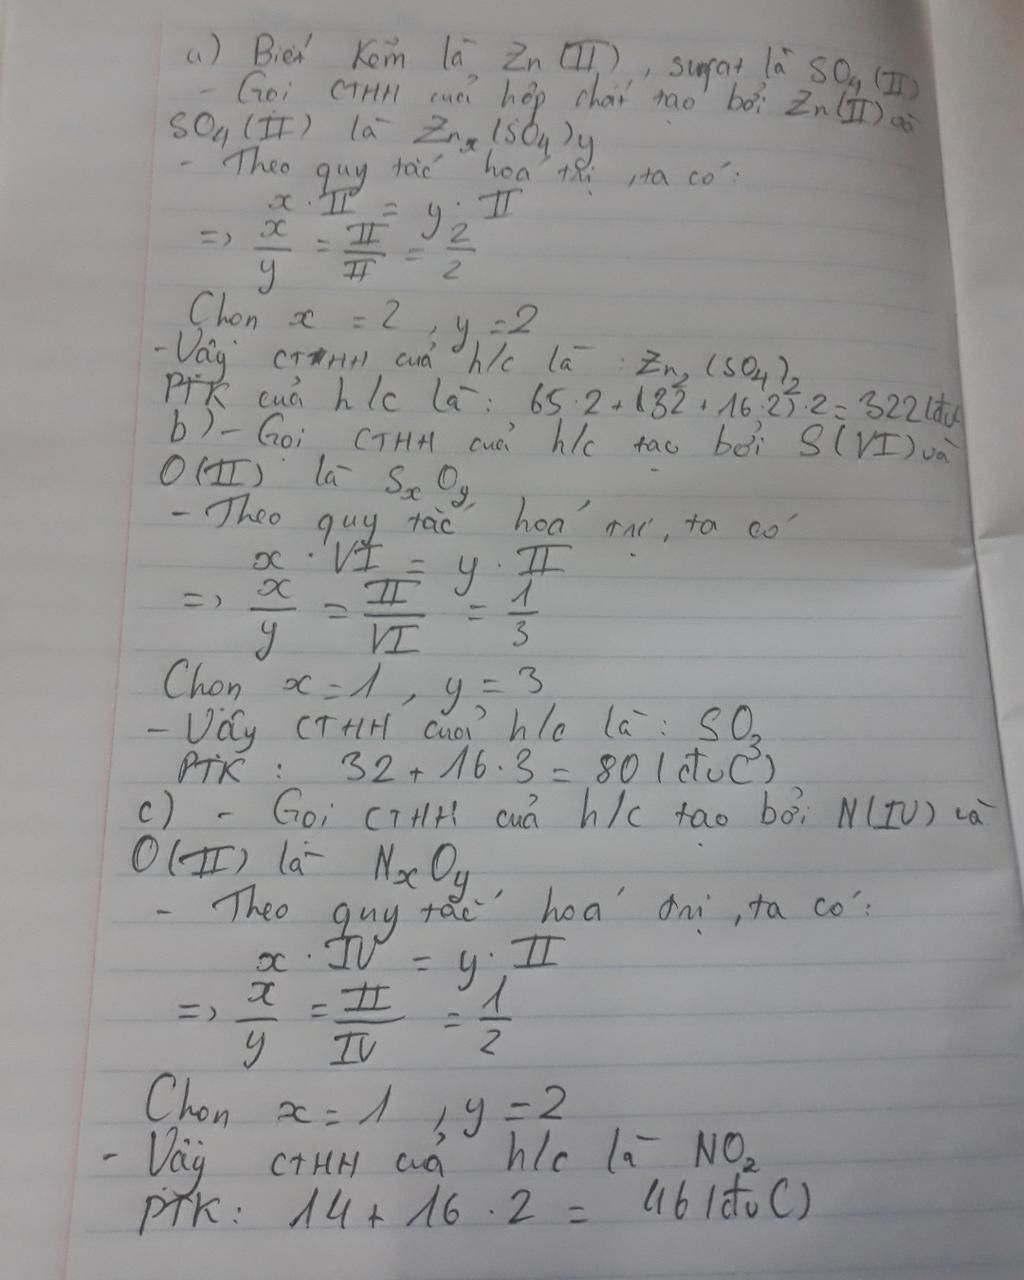 a) Biết Kẽm là Zn (II), sunfat là SO₄ (II)
- Gọi CTHH cuả hợp chất tạo bởi Zn(II) và
SO₄ (II) là Znₓ(SO₄)y
- Theo quy tắc hoá trị, ta có:
x . II = y . II
=> x/y = II/II = 2/2
Chon x = 2, y = 2
- Vây CTHH cuả h/c là : Zn₂(SO₄)₂
PTK cuả h/c là: 65.2+(32+16.2).2=322(đvC
b) - Goi CTHH cuả h/c tạo bởi S(VI) và
O(II) là SₓOy
- Theo quy tắc hoá trị, ta có
x . VI = y . II
=> x/y = II/VI = 1/3
Chon x = 1, y = 3
- Vãy CTHH cuả h/c là: SO₃
PTK : 32 + 16.3 = 80 (đvC)
c) - Goi CTHH cuả h/c tạo bởi N(IV) và
O(II) là NₓOy
- Theo quy tắc hoá trị, ta có:
x . IV = y . II
=> x/y = II/IV = 1/2
Chon x = 1, y = 2
- Vãy CTHH cuả h/c là NO₂
PTK: 14 + 16 . 2 = 46 (đvC)